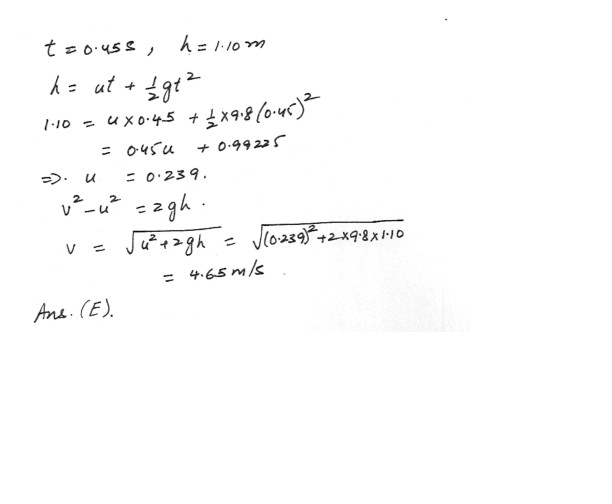 t = 0.45 s, h = 1.10 m
h = ut + 1/2 gt²
1.10 = u × 0.45 + 1/2 × 9.8 (0.45)²
= 0.45u + 0.99225
⇒. u = 0.239.
v² - u² = 2gh.
v = √(u² + 2gh) = √((0.239)² + 2 × 9.8 × 1.10)
= 4.65 m/s
Ans. (E).